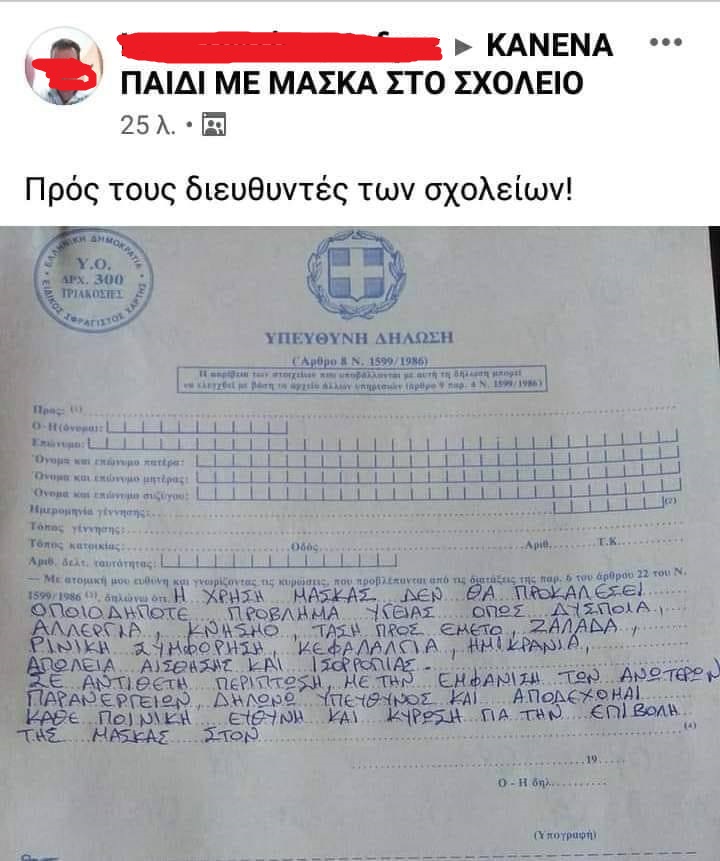 ▸ ΚΑΝΕΝΑ
ΠΑΙΔΙ ΜΕ ΜΑΣΚΑ ΣΤΟ ΣΧΟΛΕΙΟ
25 λ. •
Πρός τους διευθυντές των σχολείων!
ΕΛΛΗΝΙΚΗ ΔΗΜΟΚΡΑΤΙΑ
Υ.Ο.
ΔΡΧ. 300
ΤΡΙΑΚΟΣΙΕΣ
ΕΙΔΙΚΟΣ ΣΦΡΑΓΙΣΤΟΣ ΧΑΡΤΗΣ
ΥΠΕΥΘΥΝΗ ΔΗΛΩΣΗ
(Άρθρο 8 Ν. 1599/1986)
Η ακρίβεια των στοιχείων που υποβάλλονται με αυτή τη δήλωση μπορεί
να ελεγχθεί με βάση το αρχείο άλλων υπηρεσιών (άρθρο 9 παρ. 4 Ν. 1599/1986)
Προς: (1)
Ο-Η (όνομα):
Επώνυμο:
Όνομα και επώνυμο πατέρα:
Όνομα και επώνυμο μητέρας:
Όνομα και επώνυμο συζύγου:
Ημερομηνία γέννησης: (2)
Τόπος γέννησης:
Τόπος κατοικίας: Οδός Αριθ. Τ.Κ.
Αριθ. δελτ. ταυτότητας:
— Με ατομική μου ευθύνη και γνωρίζοντας τις κυρώσεις, που προβλέπονται από τις διατάξεις της παρ. 6 του άρθρου 22 του Ν.
1599/1986 (3), δηλώνω ότι: Η ΧΡΗΣΗ ΜΑΣΚΑΣ ΔΕΝ ΘΑ ΠΡΟΚΑΛΕΣΕΙ
ΟΠΟΙΟΔΗΠΟΤΕ ΠΡΟΒΛΗΜΑ ΥΓΕΙΑΣ ΟΠΩΣ ΔΥΣΠΟΙΑ,
ΑΛΛΕΡΓΙΑ, ΚΝΗΣΜΟ, ΤΑΣΗ ΠΡΟΣ ΕΜΕΤΟ, ΖΑΛΑΔΑ,
ΡΙΝΙΚΗ ΣΥΜΦΟΡΗΣΗ, ΚΕΦΑΛΑΛΓΙΑ, ΗΜΙΚΡΑΝΙΑ,
ΑΠΩΛΕΙΑ ΑΙΣΘΗΣΗΣ ΚΑΙ ΙΣΟΡΡΟΠΙΑΣ.
ΣΕ ΑΝΤΙΘΕΤΗ ΠΕΡΙΠΤΩΣΗ, ΜΕ ΤΗΝ ΕΜΦΑΝΙΣΗ ΤΩΝ ΑΝΩΤΕΡΩΝ
ΠΑΡΑΝΕΡΓΕΙΩΝ, ΔΗΛΩΝΩ ΥΠΕΥΘΥΝΟΣ ΚΑΙ ΑΠΟΔΕΧΟΜΑΙ
ΚΑΘΕ ΠΟΙΝΙΚΗ ΕΥΘΥΝΗ ΚΑΙ ΚΥΡΩΣΗ ΓΙΑ ΤΗΝ ΕΠΙΒΟΛΗ
ΤΗΣ ΜΑΣΚΑΣ ΣΤΟΝ (4)
19
Ο-Η δηλ.
(Υπογραφή)